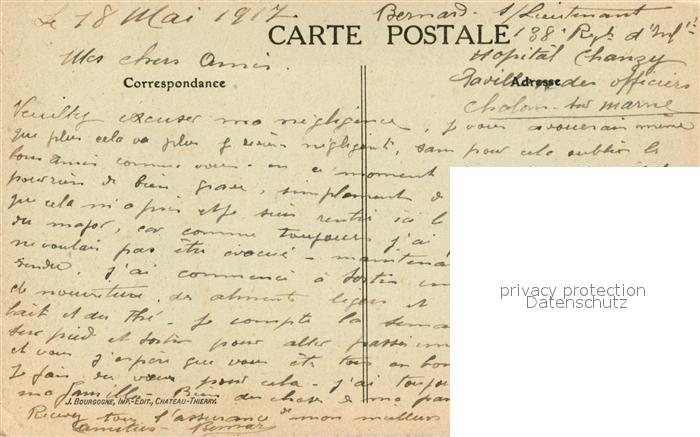 Le 18 Mai 1917
Bernard s/Lieutenant
CARTE POSTALE
138e Regt d'Infie
Mes chers Amis.
Hopital Chanzy
Correspondance
Adresse
Pavillon des officiers
Chalons sur Marne
Veuillez excuser ma négligence, je vous avouerai même
que plus cela va plus je suis négligent, sans pour cela oublier les
bons amis comme vous. en ce moment
pour rien de bien grave, simplement de
que cela m'a pris et je suis rentré ici le
du major, car comme toujours j'ai
ne voulais pas être évacué. maintenant
rendre, j'ai commencé à sortir un
de nourriture, des aliments légers et
lait et du thé. Je compte la semai
sur pied et sortir pour aller passer un
et vous j'espère que vous êtes tous en bon
Je fais des vœux pour cela. j'ai toujou
ma famille. Bien des choses de ma par
J. BOURGOGNE, IMP.-EDIT., CHATEAU-THIERRY.
Recevez tous l'assurance de mon meilleurs
amitiés. Bernard
privacy protection
Datenschutz